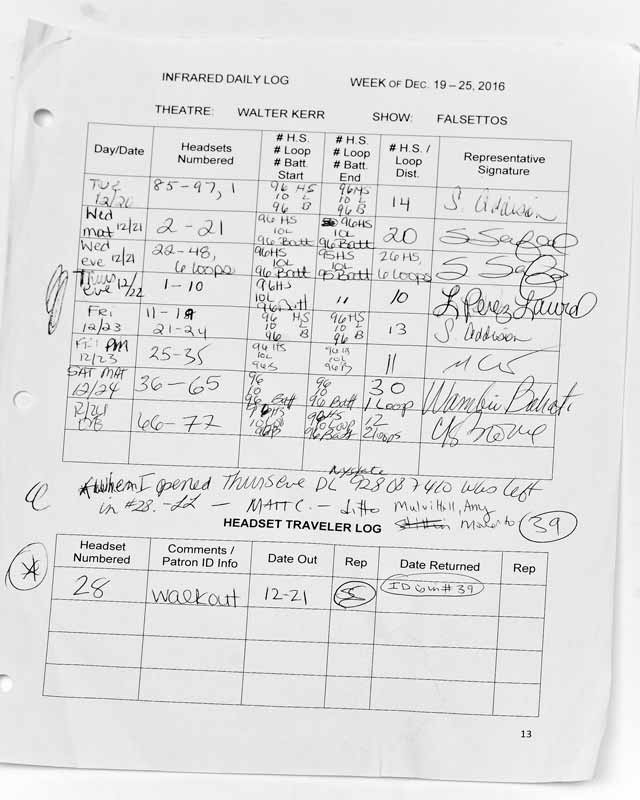 INFRARED DAILY LOG WEEK OF DEC. 19 – 25, 2016
THEATRE: WALTER KERR SHOW: FALSETTOS
Day/Date Headsets Numbered # H.S. # Loop # Batt. Start # H.S. # Loop # Batt. End # H.S. / Loop Dist. Representative Signature
Tue 12/20 85-97, 1 96 HS 10 L 96 B 96 HS 10 L 96 B 14 S. Addison
Wed mat 12/21 2-21 96 HS 10L 96 Batt 96 HS 10L 96 Batt 20
Wed eve 12/21 22-48, 6 loops 96 HS 10L 96 Batt 95 HS 10L 95 Batt 26 HS, 6 Loops
Thurs eve 12/22 1-10 96 HS 10L 96 Batt " 10 L Perez Laurel
Fri 12/23 11-18 21-24 96 HS 10 L 96 B 96 HS 10 L 96 B 13 S. Addison
Fri PM 12/23 25-35 96 HS 10L 96 B 96 10L 96 B 11
SAT MAT 12/24 36-65 96 10 96 Batt 96 10 96 Batt 30 1 Loop
12/24 66-77 96 HS 10 Loop 96 HS 10 Loop 96 Batt 12 2 loops
When I opened Thurs eve DL 928087410 was left
in #28. - LL - MATT C. - ditto Mulvihall, Amy 39
HEADSET TRAVELER LOG
Headset Numbered Comments / Patron ID Info Date Out Rep Date Returned Rep
28 walkout 12-21 SS ID is in #39
13